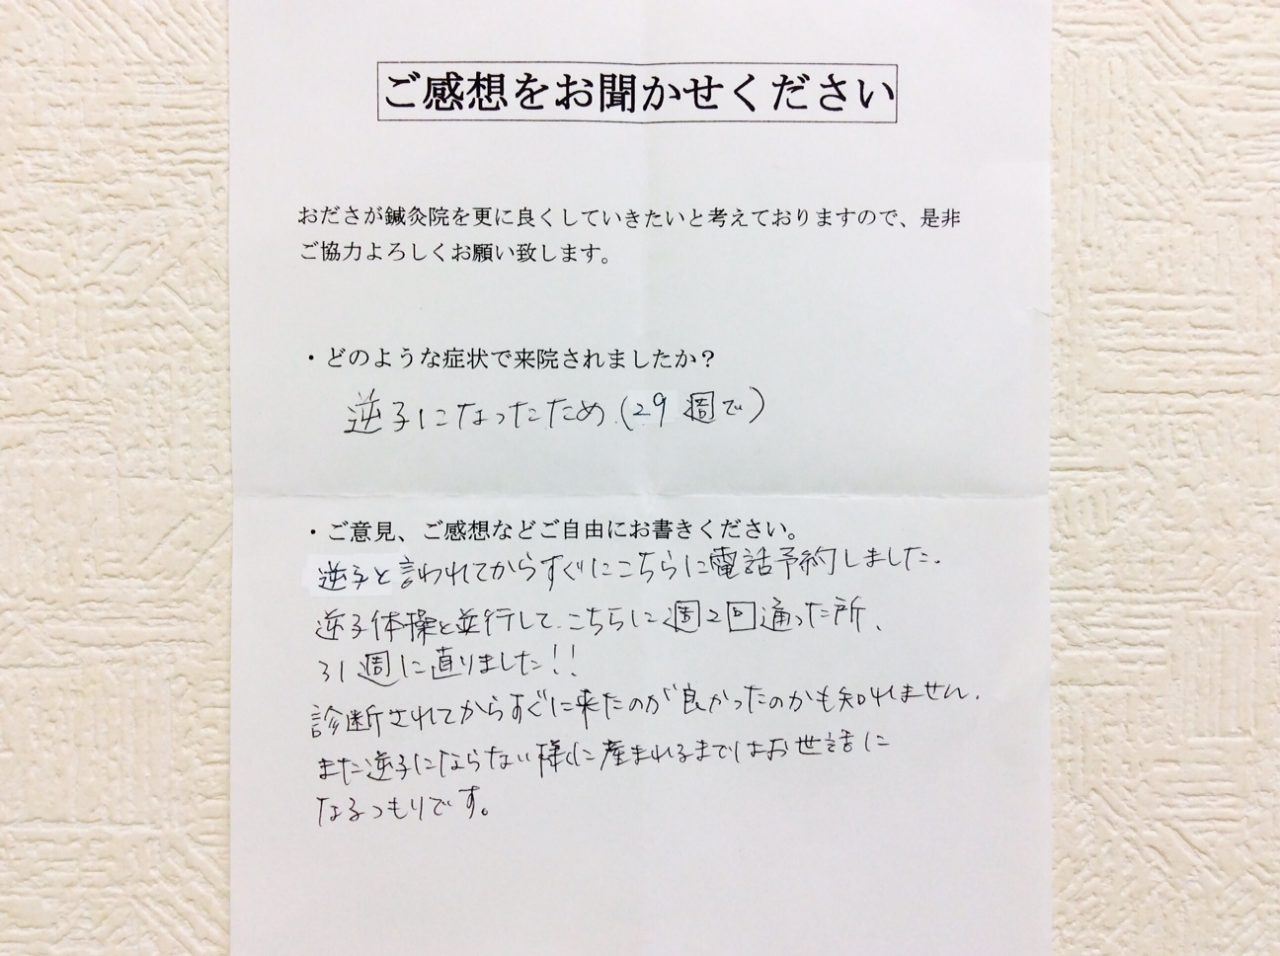 ご感想をお聞かせください
おださが鍼灸院を更に良くしていきたいと考えておりますので、是非
ご協力よろしくお願い致します。
・どのような症状で来院されましたか？
逆子になったため.(29週で)
・ご意見、ご感想などご自由にお書きください。
逆子と言われてからすぐにこちらに電話予約しました.
逆子体操と並行して.こちらに週2回通った所、
31週に直りました!!
診断されてからすぐに来たのが良かったのかも知れません.
また逆子にならない様に産まれるまではお世話に
なるつもりです。